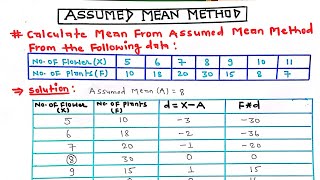 ASSUMED MEAN METHOD
# Calculate Mean From Assumed Mean Method
From the Following data:
No. of Flower (X) 5 6 7 8 9 10 11
No. of Plants (F) 10 18 20 30 15 8 7
⇒ Solution: Assumed Mean (A) = 8
No. of Flower (X) No. of Plants (F) d = X-A F*d
5 10 -3 -30
6 18 -2 -36
7 20 -1 -20
8 30 0 0
9 15 1 15